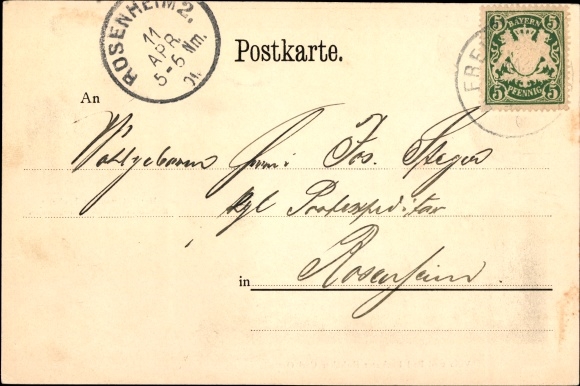 ROSENHEIM 2.
11
APR.
5-6 Nm.
01.
Postkarte.
BAYERN
5 5
5 5
PFENNIG
FRE
An
Wohlgeboren Herrn Jos. Steger
kgl Postexpeditor
in Rosenheim.